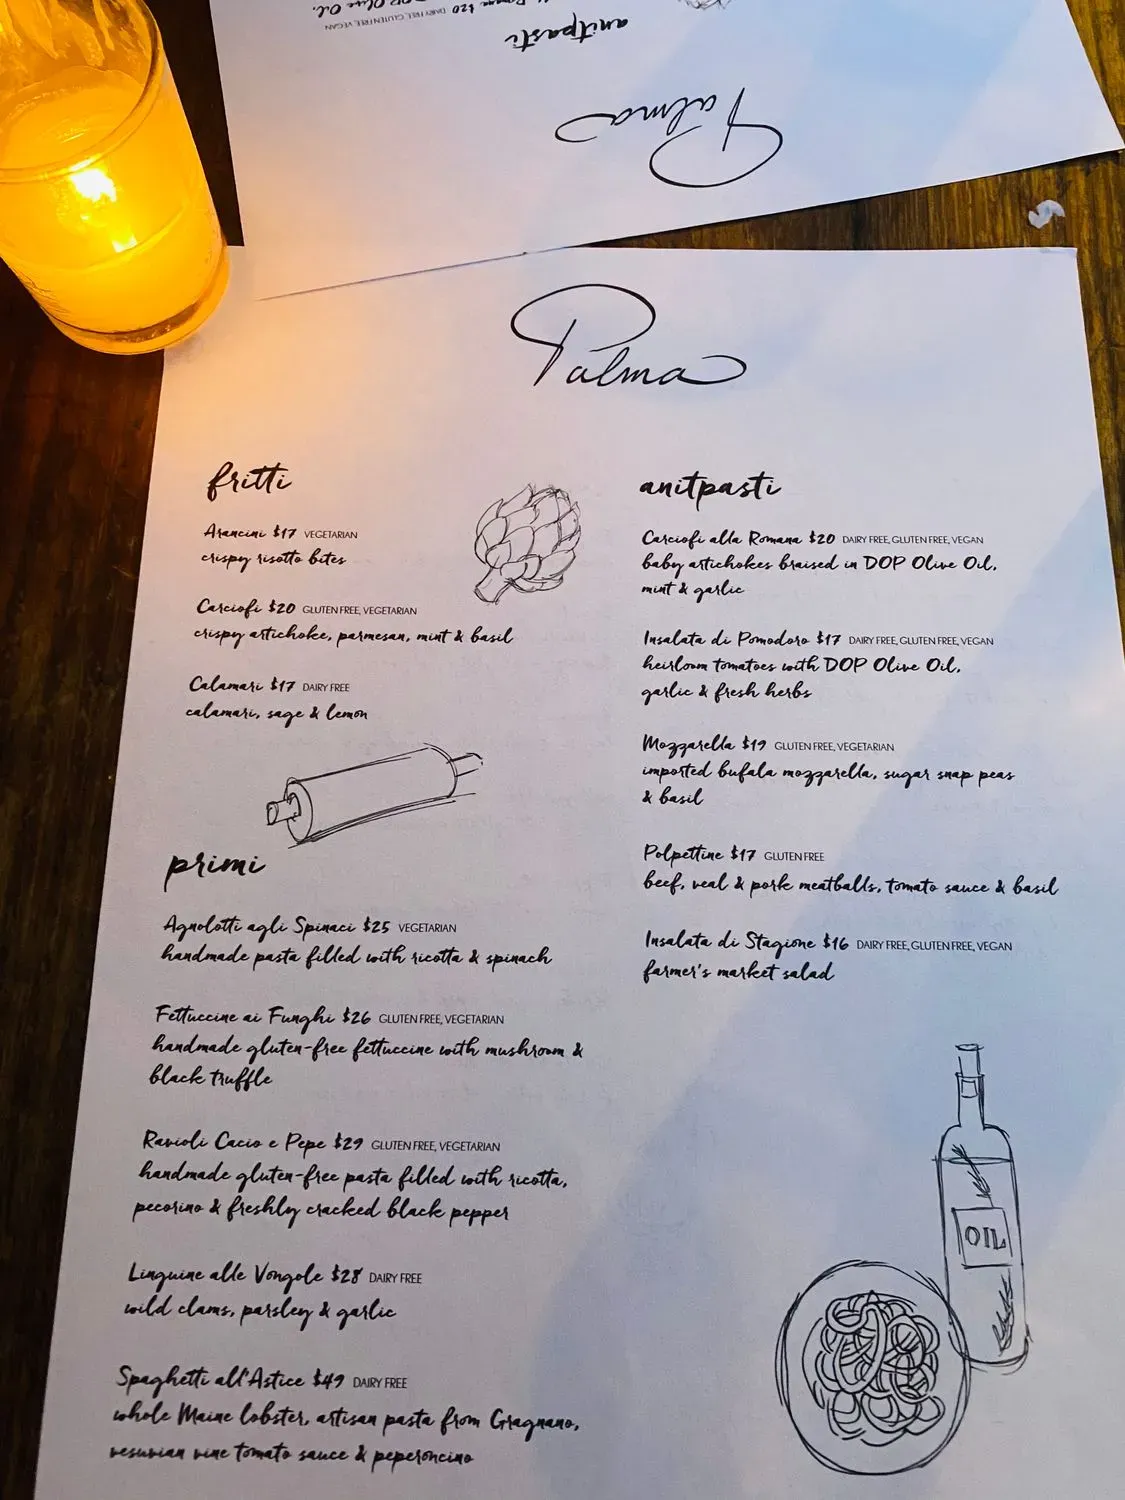 DOP Olive Oil,
$20 DAIRY FREE, GLUTEN FREE, VEGAN
anitpasti
Palma
Palma
fritti
Arancini $17 VEGETARIAN
crispy risotto bites
Carciofi $20 GLUTEN FREE, VEGETARIAN
crispy artichoke, parmesan, mint & basil
Calamari $17 DAIRY FREE
calamari, sage & lemon
primi
Agnolotti agli Spinaci $25 VEGETARIAN
handmade pasta filled with ricotta & spinach
Fettuccine ai Funghi $26 GLUTEN FREE, VEGETARIAN
handmade gluten-free fettuccine with mushroom &
black truffle
Ravioli Cacio e Pepe $29 GLUTEN FREE, VEGETARIAN
handmade gluten-free pasta filled with ricotta,
pecorino & freshly cracked black pepper
Linguine alle Vongole $28 DAIRY FREE
wild clams, parsley & garlic
Spaghetti all'Astice $49 DAIRY FREE
whole Maine lobster, artisan pasta from Gragnano,
vesuvian vine tomato sauce & peperoncino
anitpasti
Carciofi alla Romana $20 DAIRY FREE, GLUTEN FREE, VEGAN
baby artichokes braised in DOP Olive Oil,
mint & garlic
Insalata di Pomodoro $17 DAIRY FREE, GLUTEN FREE, VEGAN
heirloom tomatoes with DOP Olive Oil,
garlic & fresh herbs
Mozzarella $19 GLUTEN FREE, VEGETARIAN
imported bufala mozzarella, sugar snap peas
& basil
Polpettine $17 GLUTEN FREE
beef, veal & pork meatballs, tomato sauce & basil
Insalata di Stagione $16 DAIRY FREE, GLUTEN FREE, VEGAN
farmer's market salad
OIL